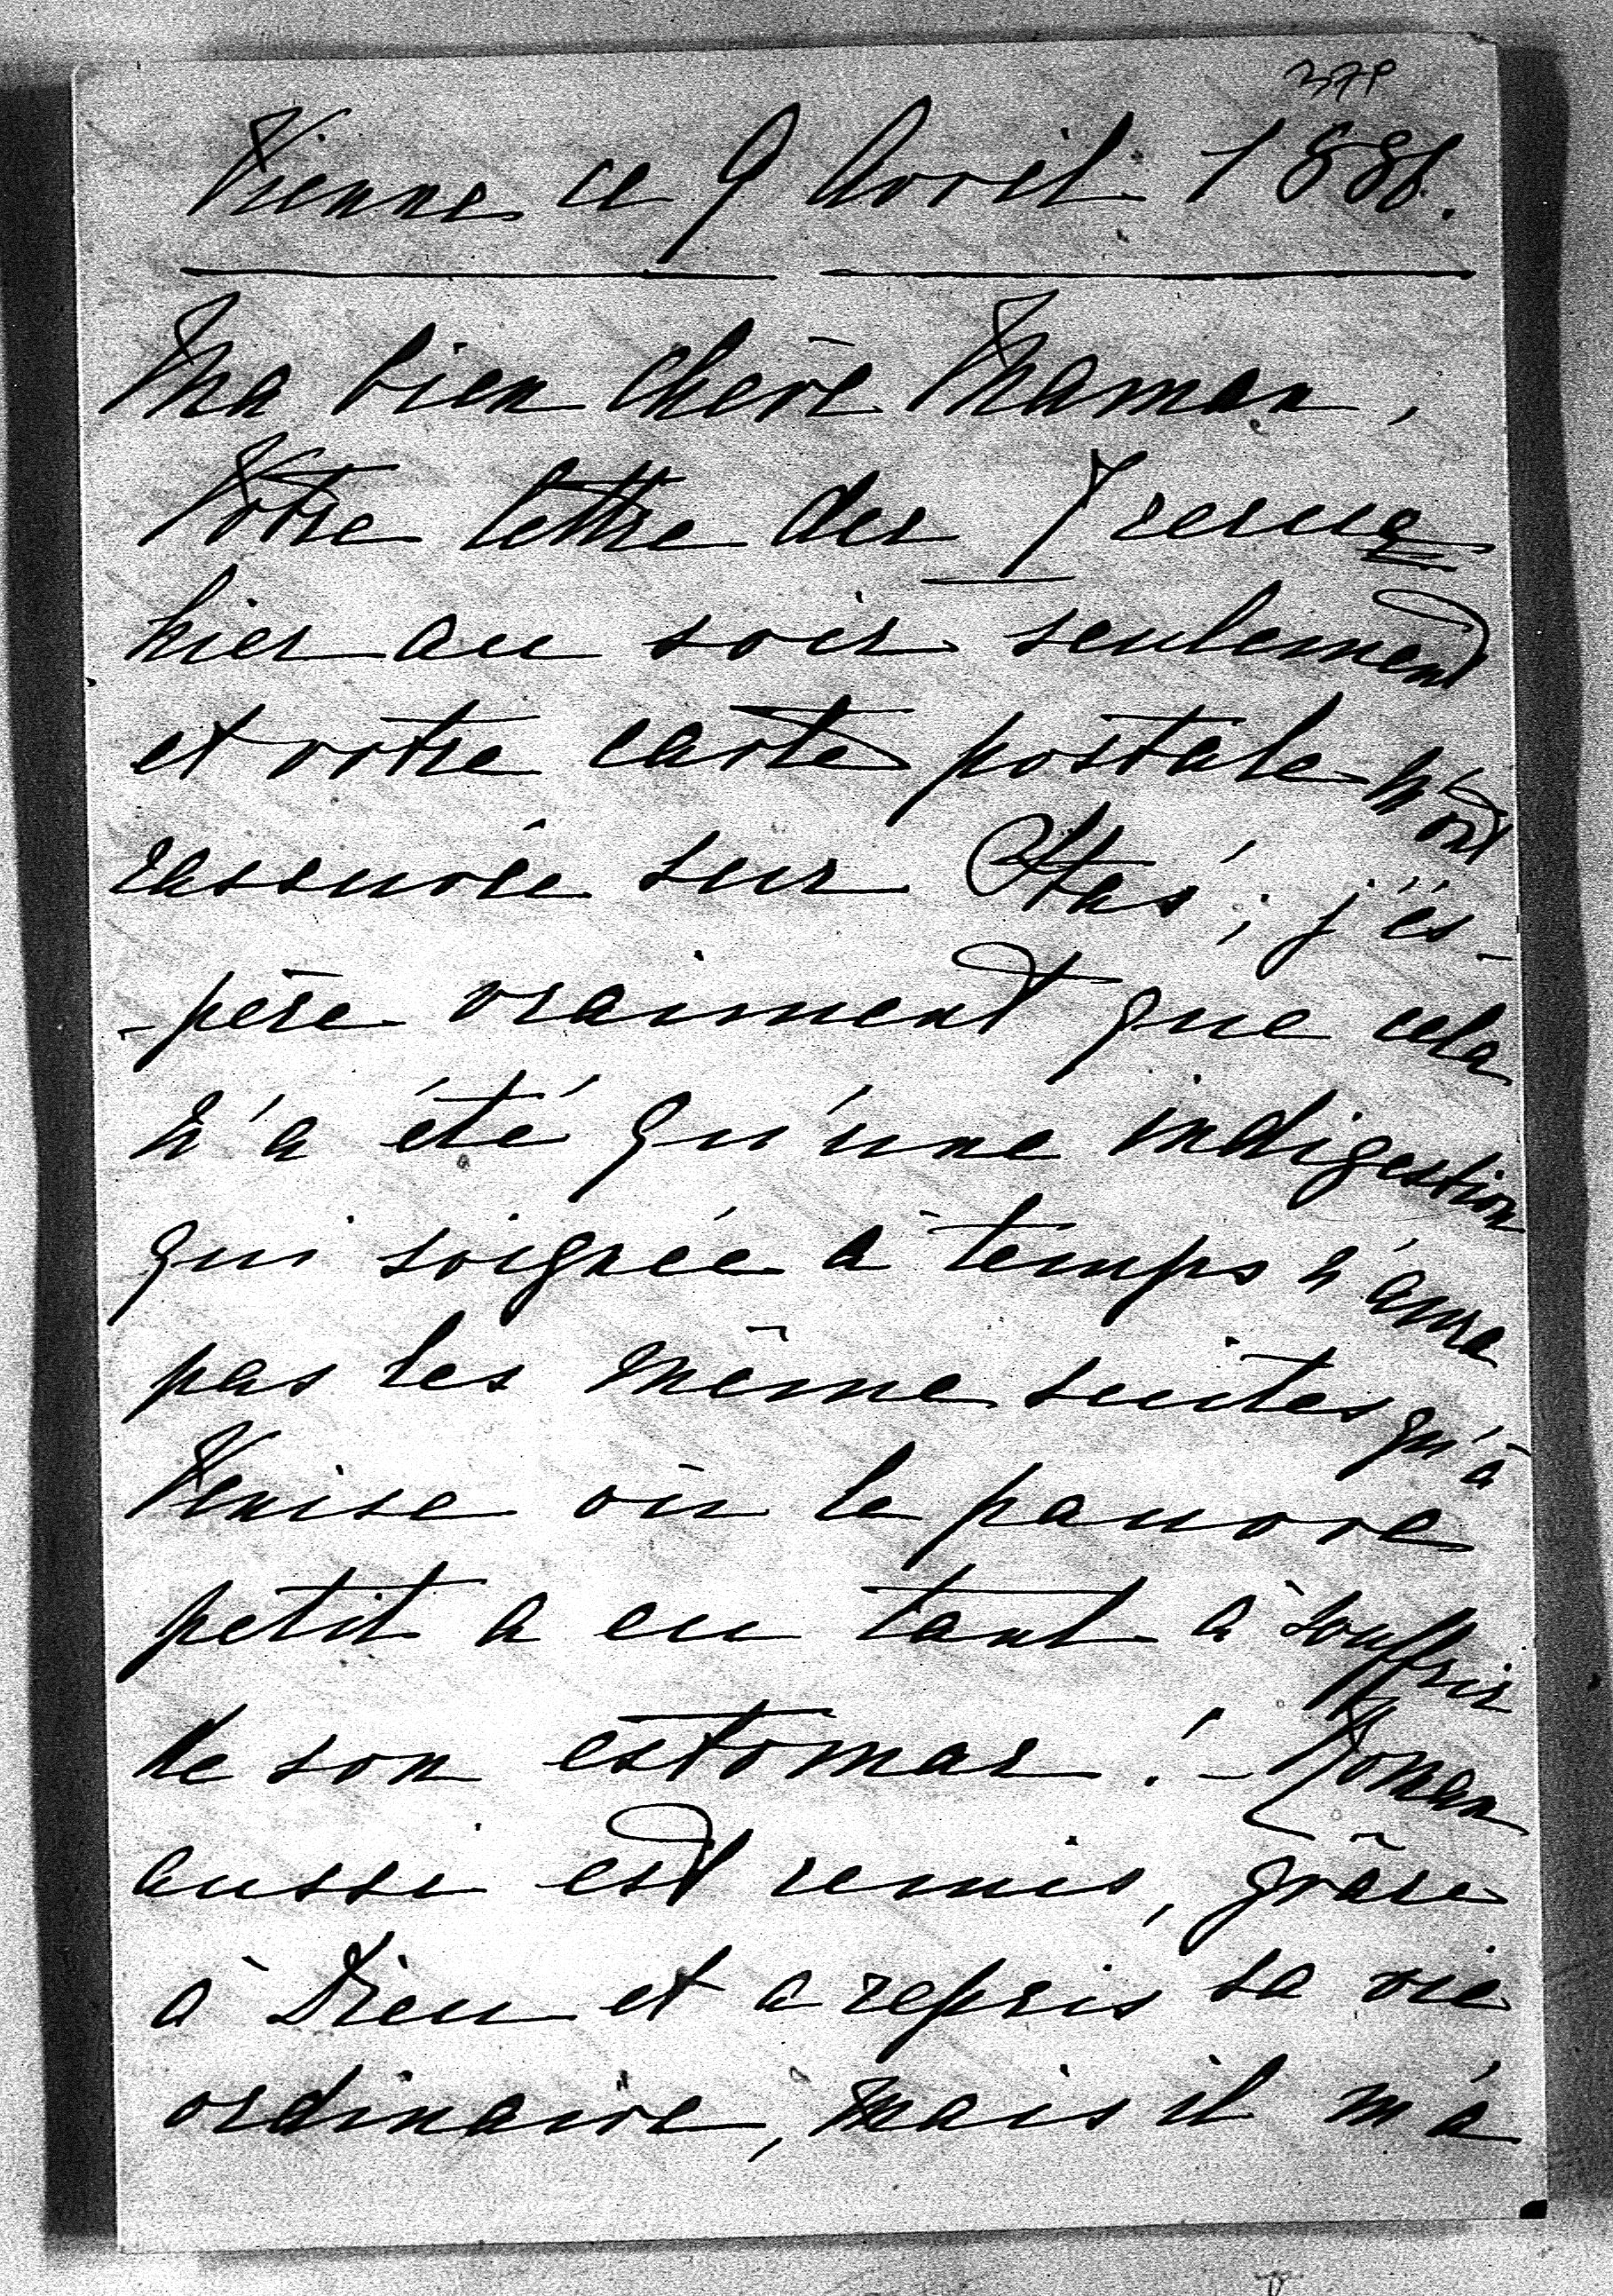 379
Vienne ce 9 Avril 1886.
Ma bien chère Maman,
Votre lettre du 7 reçue
hier au soir seulement
et votre carte postale m'ont
rassurée sur Staś; j'es-
-père vraiment que cela
n'a été qu'une indigestion
qui soignée à temps n'aura
pas les même suites qu'à
Venise où le pauvre
petit a eu tant à souffrir
de son estomac! – Roman
aussi est remis, grâce
à Dieu et a repris sa vie
ordinaire, mais il m'a